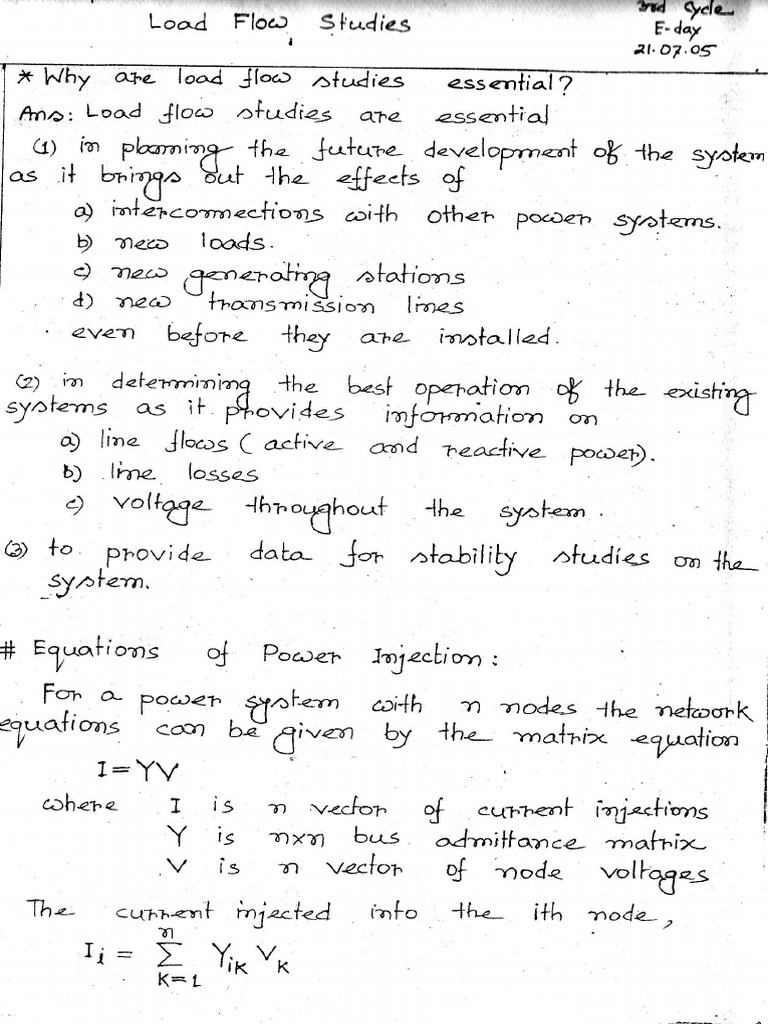 Load Flow Studies
3rd Cycle
E-day
21.07.05
* Why are load flow studies essential?
Ans: Load flow studies are essential
(1) in planning the future development of the system
as it brings out the effects of
a) interconnections with other power systems.
b) new loads.
c) new generating stations
d) new transmission lines
even before they are installed.
(2) in determining the best operation of the existing
systems as it provides information on
a) line flows (active and reactive power).
b) line losses
c) voltage throughout the system.
(3) to provide data for stability studies on the
system.
# Equations of Power Injection:
For a power system with n nodes the network
equations can be given by the matrix equation
I=YV
where I is n vector of current injections
Y is nxn bus admittance matrix
V is n vector of node voltages
The current injected into the ith node,
Ii = n∑K=1 YiK VK